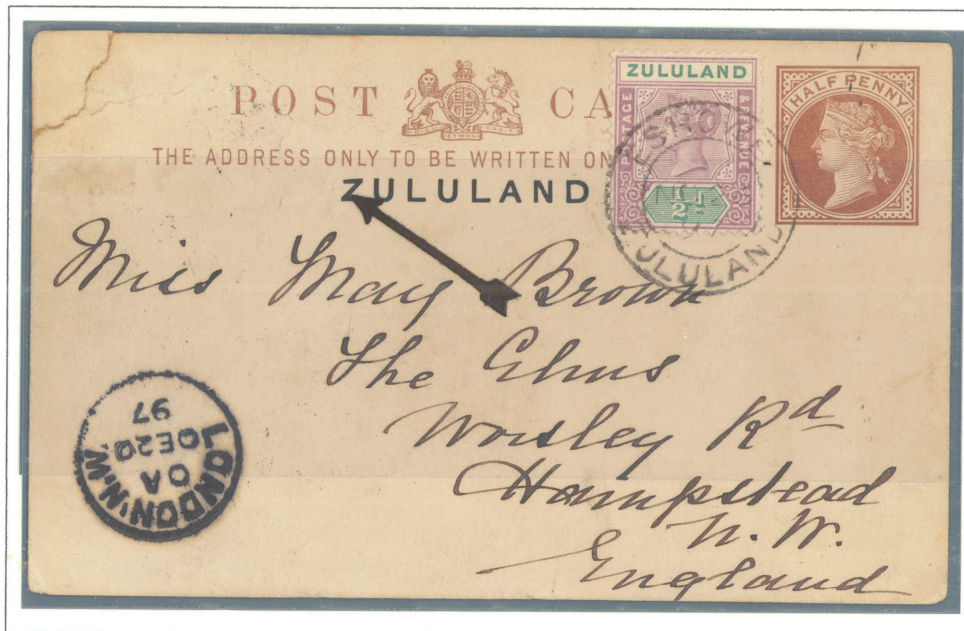 POST CA
THE ADDRESS ONLY TO BE WRITTEN ON
ZULULAND
ZULULAND
POSTAGE & REVENUE
½d
HALF PENNY
ESHOWE
ZULULAND
Miss May Brown
The Elms
Worsley Rd
Hampstead
N.W.
England
LONDON·N.W.
OA
DE20
97